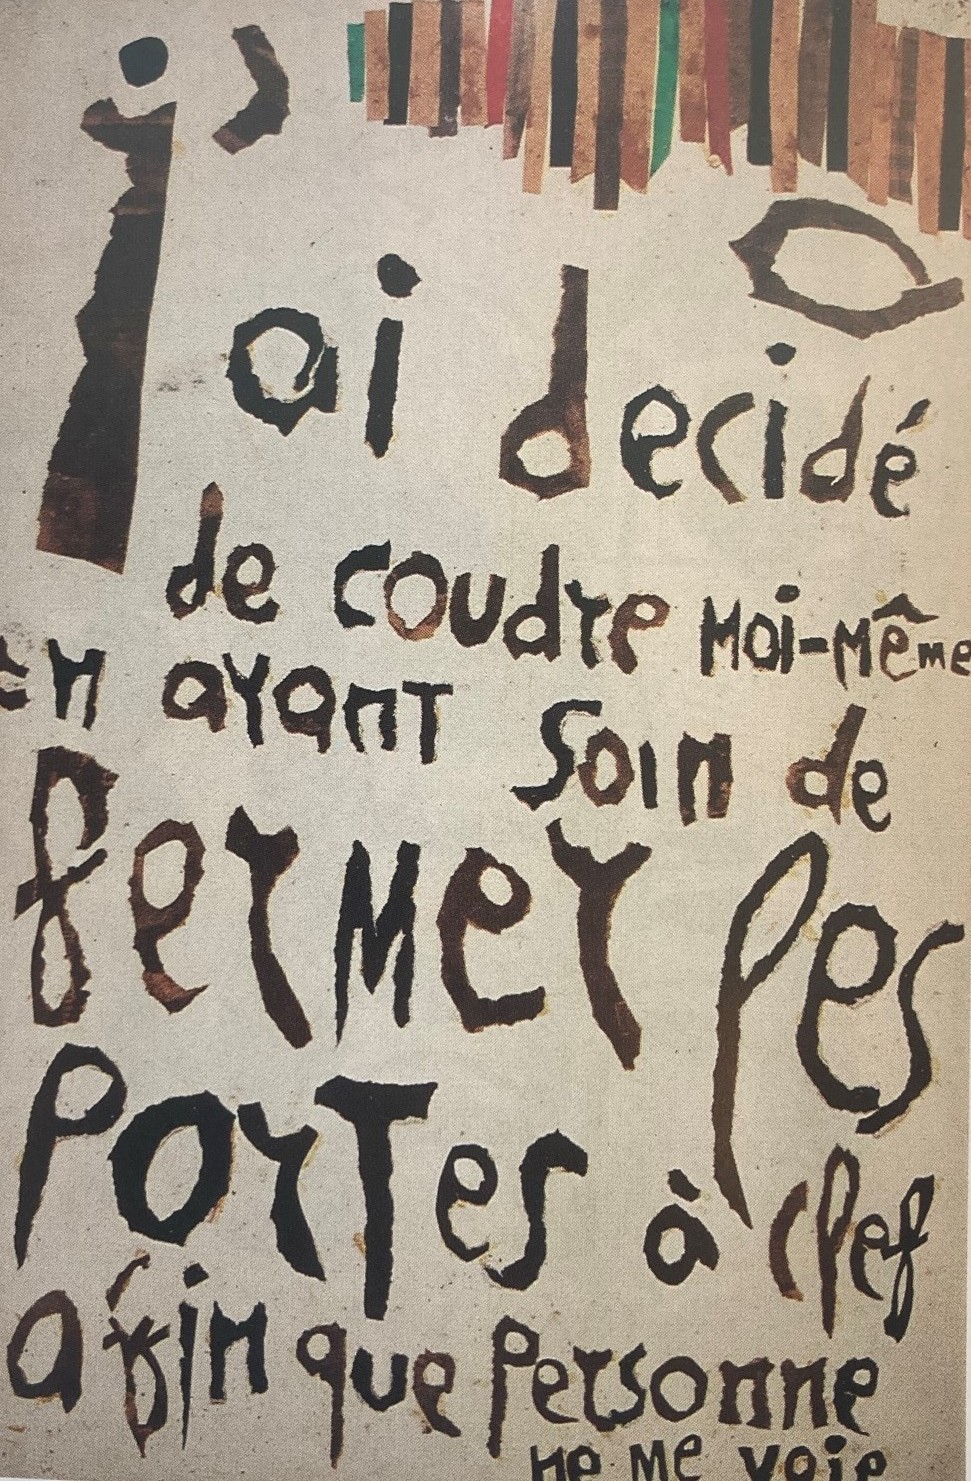 j'ai decidé
de coudre moi-même
en ayant soin de
fermer les
portes à clef
afin que personne
ne me voie